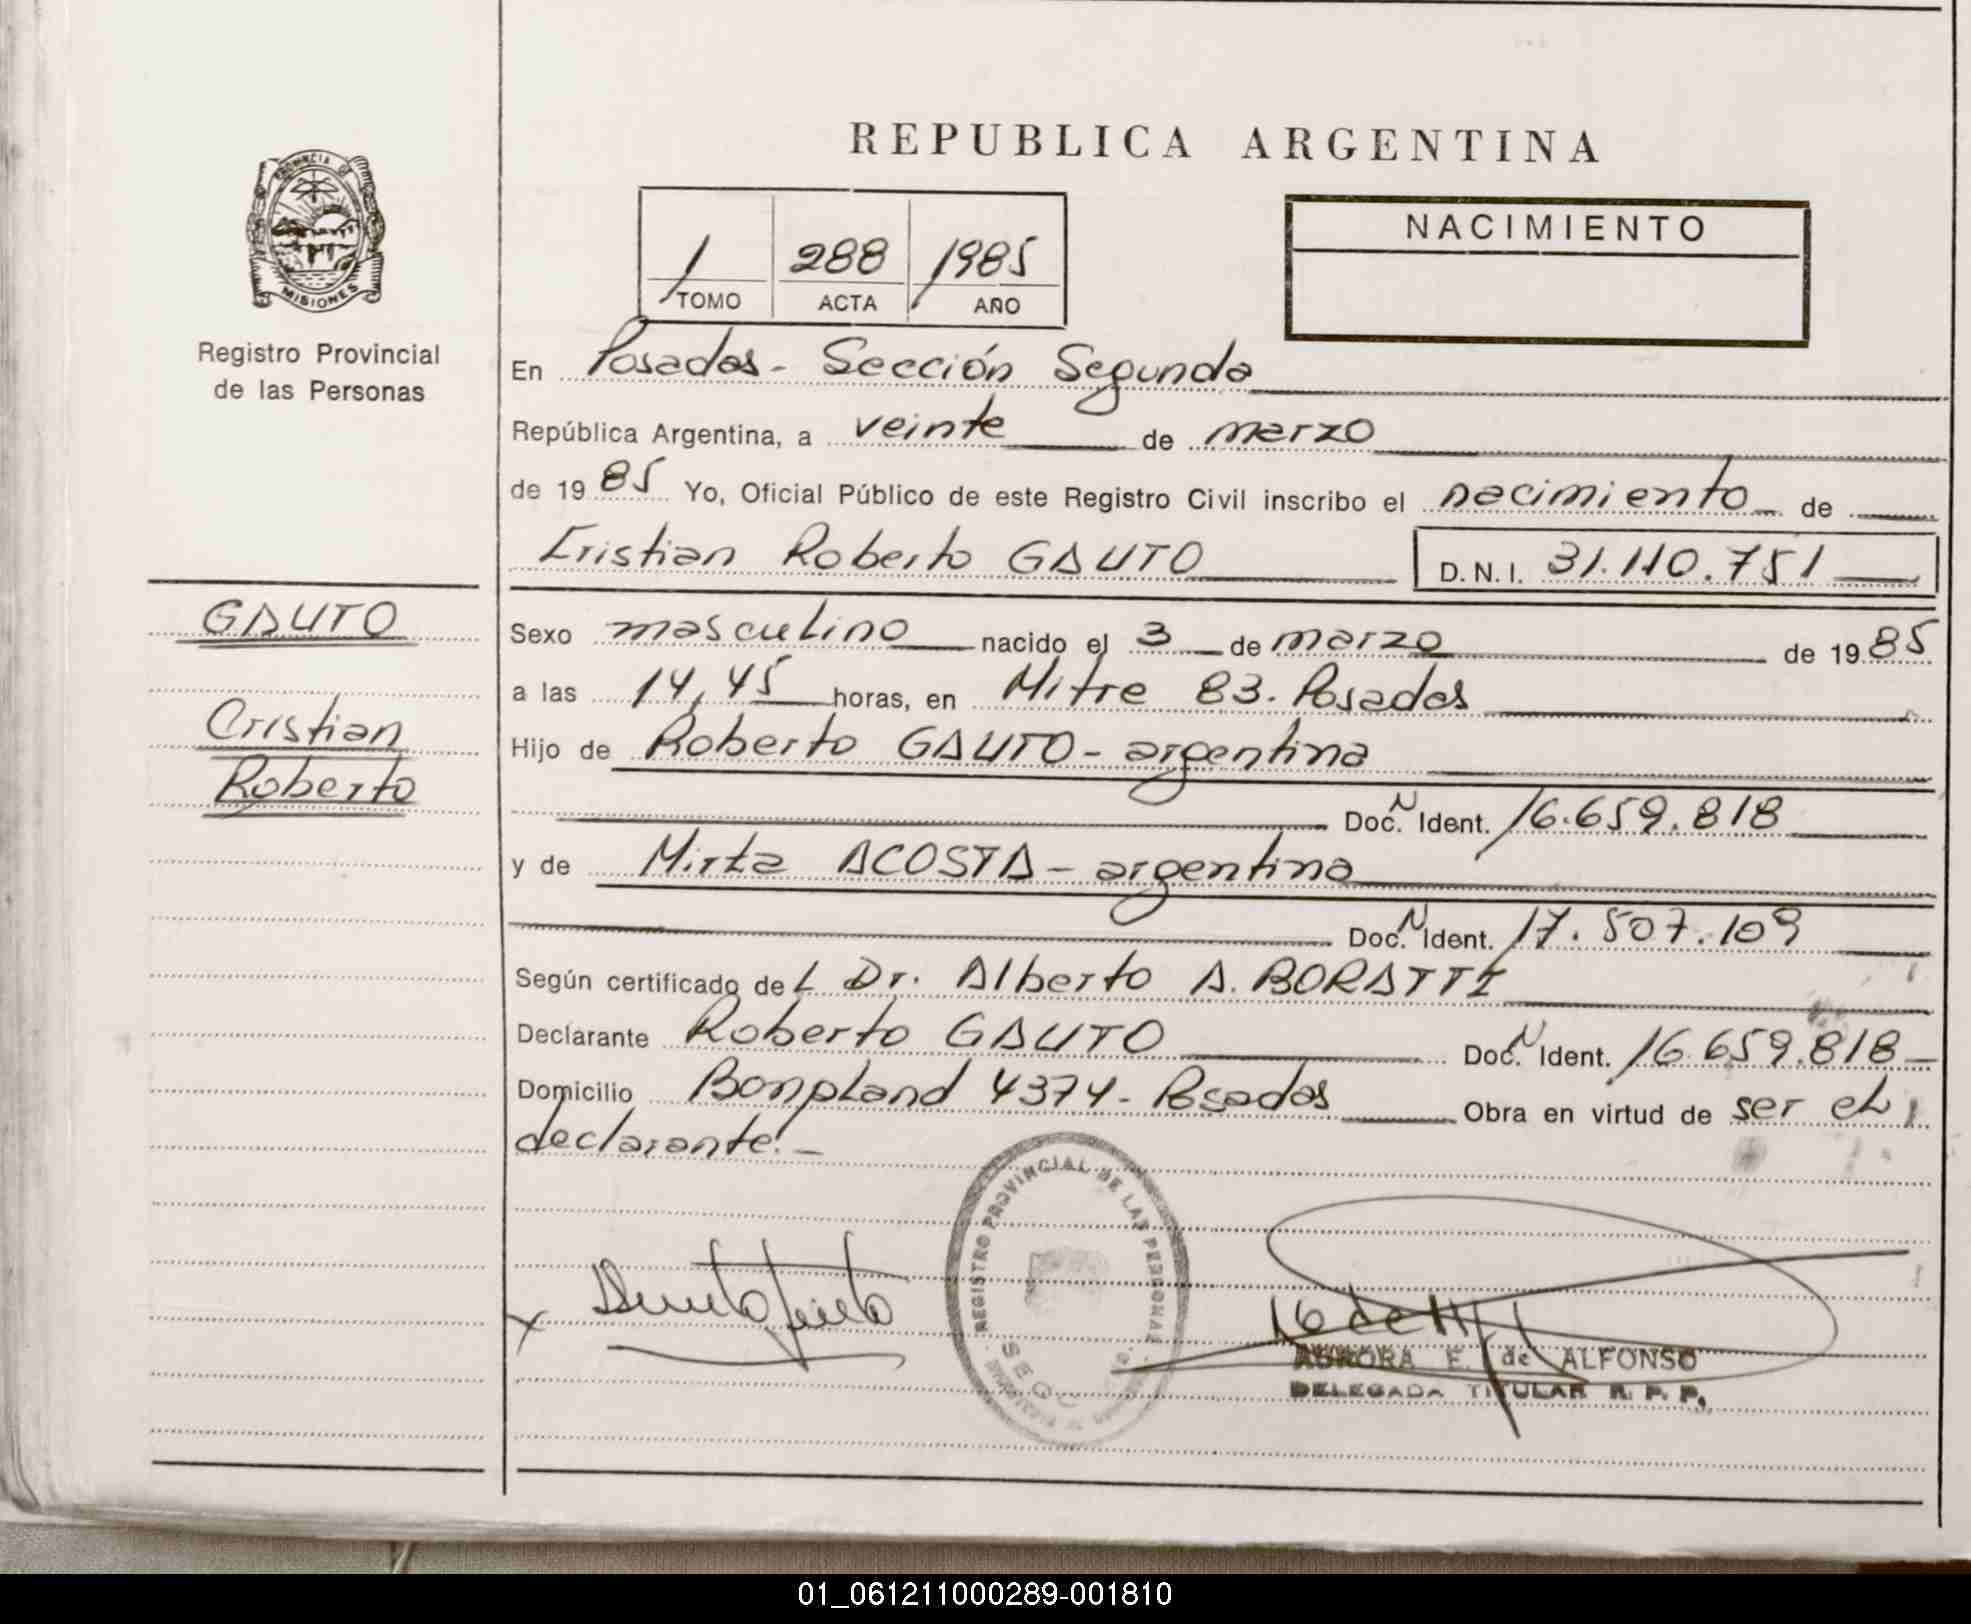 REPUBLICA ARGENTINA
PROVINCIA DE
MISIONES
Registro Provincial
de las Personas
1 288 1985
TOMO ACTA AÑO
NACIMIENTO
En Posadas - Sección Segunda
República Argentina, a veinte de marzo
de 1985 Yo, Oficial Público de este Registro Civil inscribo el nacimiento de
Cristian Roberto GAUTO D.N.I. 31.110.751
GAUTO
Cristian
Roberto
Sexo masculino nacido el 3 de marzo de 1985
a las 14,45 horas, en Mitre 83. Posadas
Hijo de Roberto GAUTO - argentina
Doc. N Ident. 16.659.818
y de Mirta ACOSTA - argentina
Doc. N Ident. 17.507.109
Según certificado del Dr. Alberto A. BORATTI
Declarante Roberto GAUTO Doc. N Ident. 16.659.818
Domicilio Bonpland 4374 - Posadas Obra en virtud de ser el
declarante.-
REGISTRO PROVINCIAL DE LAS PERSONAS
AURORA E. de ALFONSO
DELEGADA TITULAR R. P. P.
01_061211000289-001810